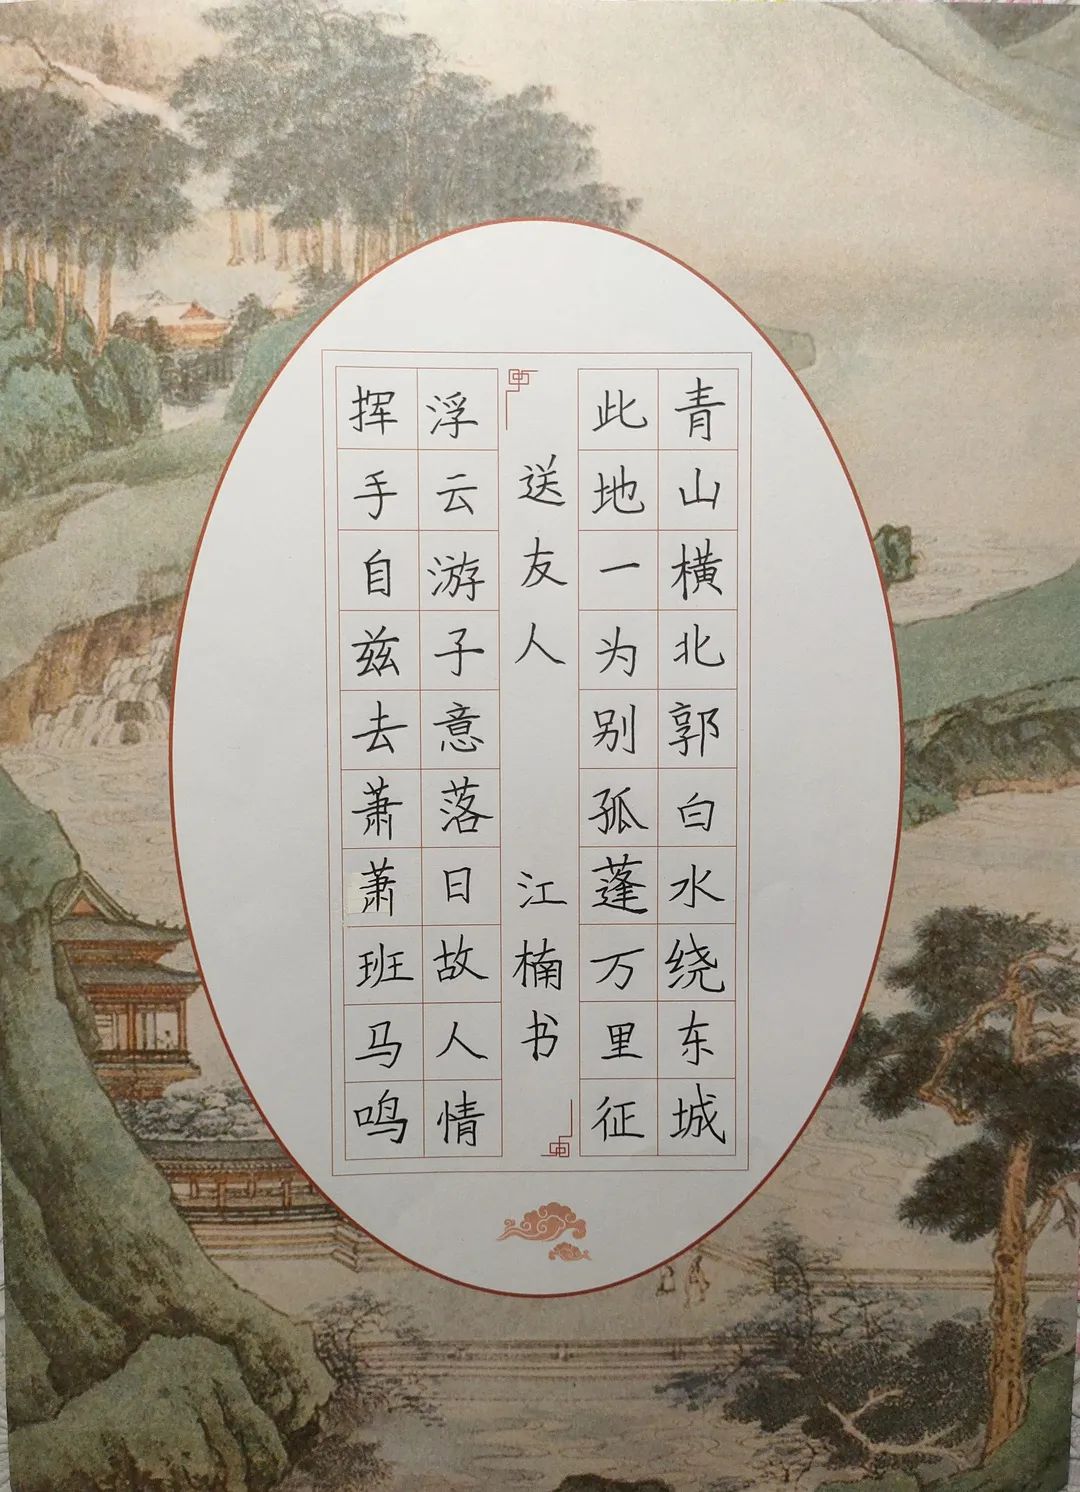 青山横北郭白水绕东城
此地一为别孤蓬万里征
送友人
江楠书
浮云游子意落日故人情
挥手自兹去萧萧班马鸣